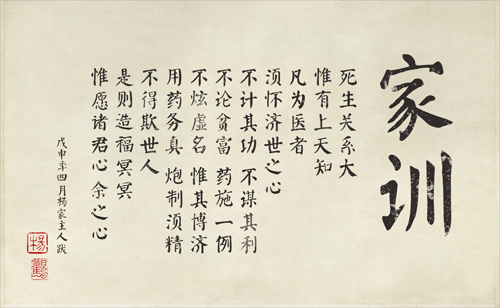 家训
死生关系大
惟有上天知
凡为医者
须怀济世之心
不计其功 不谋其利
不论贫富 药施一例
不炫虚名 惟其博济
用药务真 炮制须精
不得欺世人
是则造福冥冥
惟愿诸君心 余之心
戊申年四月杨家主人跋
楊